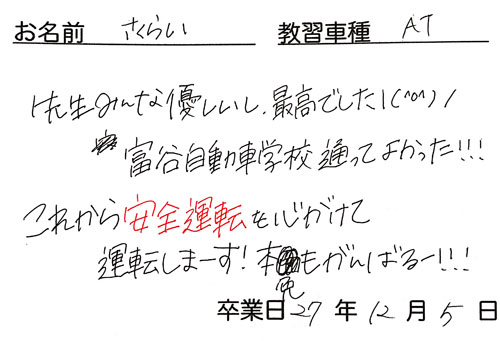 お名前 さくらい 教習車種 AT
先生みんな優しいし、最高でした\(^o^)/
富谷自動車学校通ってよかった!!!
これから安全運転を心がけて
運転しまーす!本もがんばるー!!!
卒業日 27 年 12 月 5 日